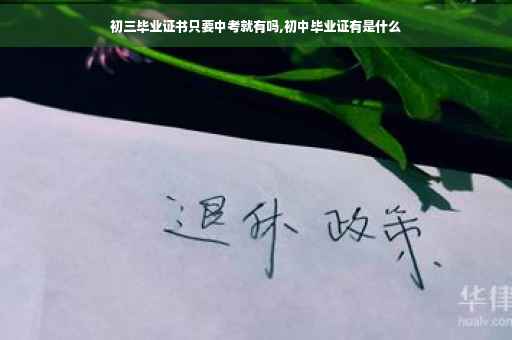 初三毕业证书只要中考就有吗,初中毕业证有是什么
退休 政策
华律
hualv.com